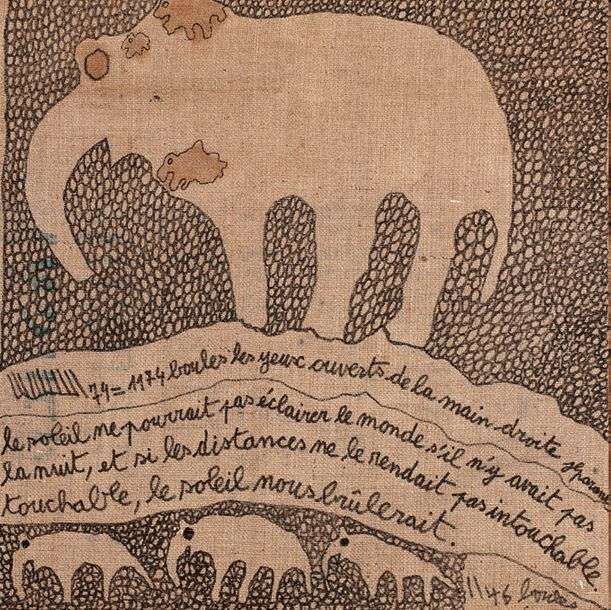 74=1174 boules les yeux ouverts de la main droite
le soleil ne pourrait pas éclairer le monde s'il n'y avait pas
la nuit, et si les distances ne le rendait pas intouchable.
touchable, le soleil nous brûlerait.
1146